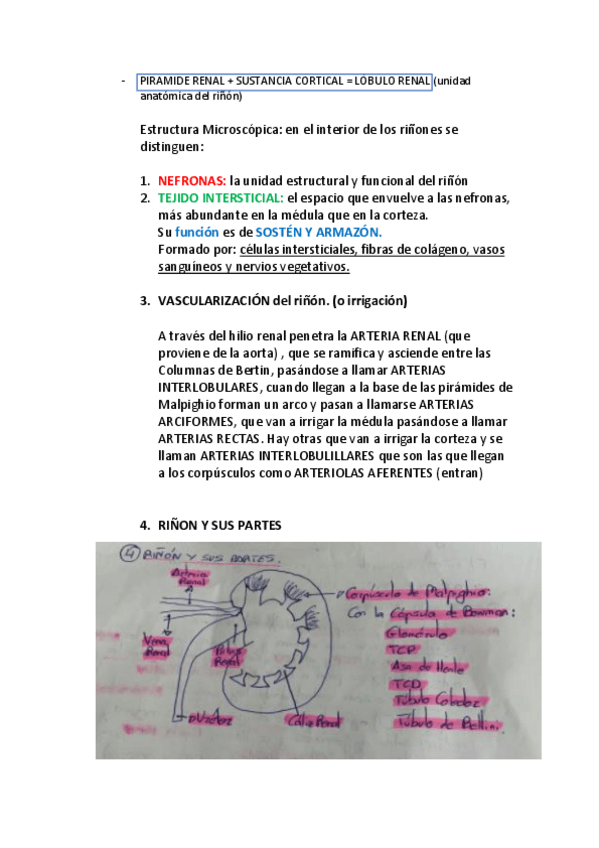 - PIRAMIDE RENAL + SUSTANCIA CORTICAL = LOBULO RENAL (unidad
anatómica del riñón)
Estructura Microscópica: en el interior de los riñones se
distinguen:
1. NEFRONAS: la unidad estructural y funcional del riñón
2. TEJIDO INTERSTICIAL: el espacio que envuelve a las nefronas,
más abundante en la médula que en la corteza.
Su función es de SOSTÉN Y ARMAZÓN.
Formado por: células intersticiales, fibras de colágeno, vasos
sanguíneos y nervios vegetativos.
3. VASCULARIZACIÓN del riñón. (o irrigación)
A través del hilio renal penetra la ARTERIA RENAL (que
proviene de la aorta) , que se ramifica y asciende entre las
Columnas de Bertin, pasándose a llamar ARTERIAS
INTERLOBULARES, cuando llegan a la base de las pirámides de
Malpighio forman un arco y pasan a llamarse ARTERIAS
ARCIFORMES, que van a irrigar la médula pasándose a llamar
ARTERIAS RECTAS. Hay otras que van a irrigar la corteza y se
llaman ARTERIAS INTERLOBULILLARES que son las que llegan
a los corpúsculos como ARTERIOLAS AFERENTES (entran)
4. RIÑON Y SUS PARTES
4 RIÑÓN Y SUS PARTES.
Arteria
Renal
Vena
Renal
Pelvis
Renal
Uréter
Cáliz Renal
Corpúsculo de Malpighio:
Con la Cápsula de Bowman:
Glomérulo
TCP
Asa de Henle
TCD
Túbulo Colector
Túbulo de Bellini